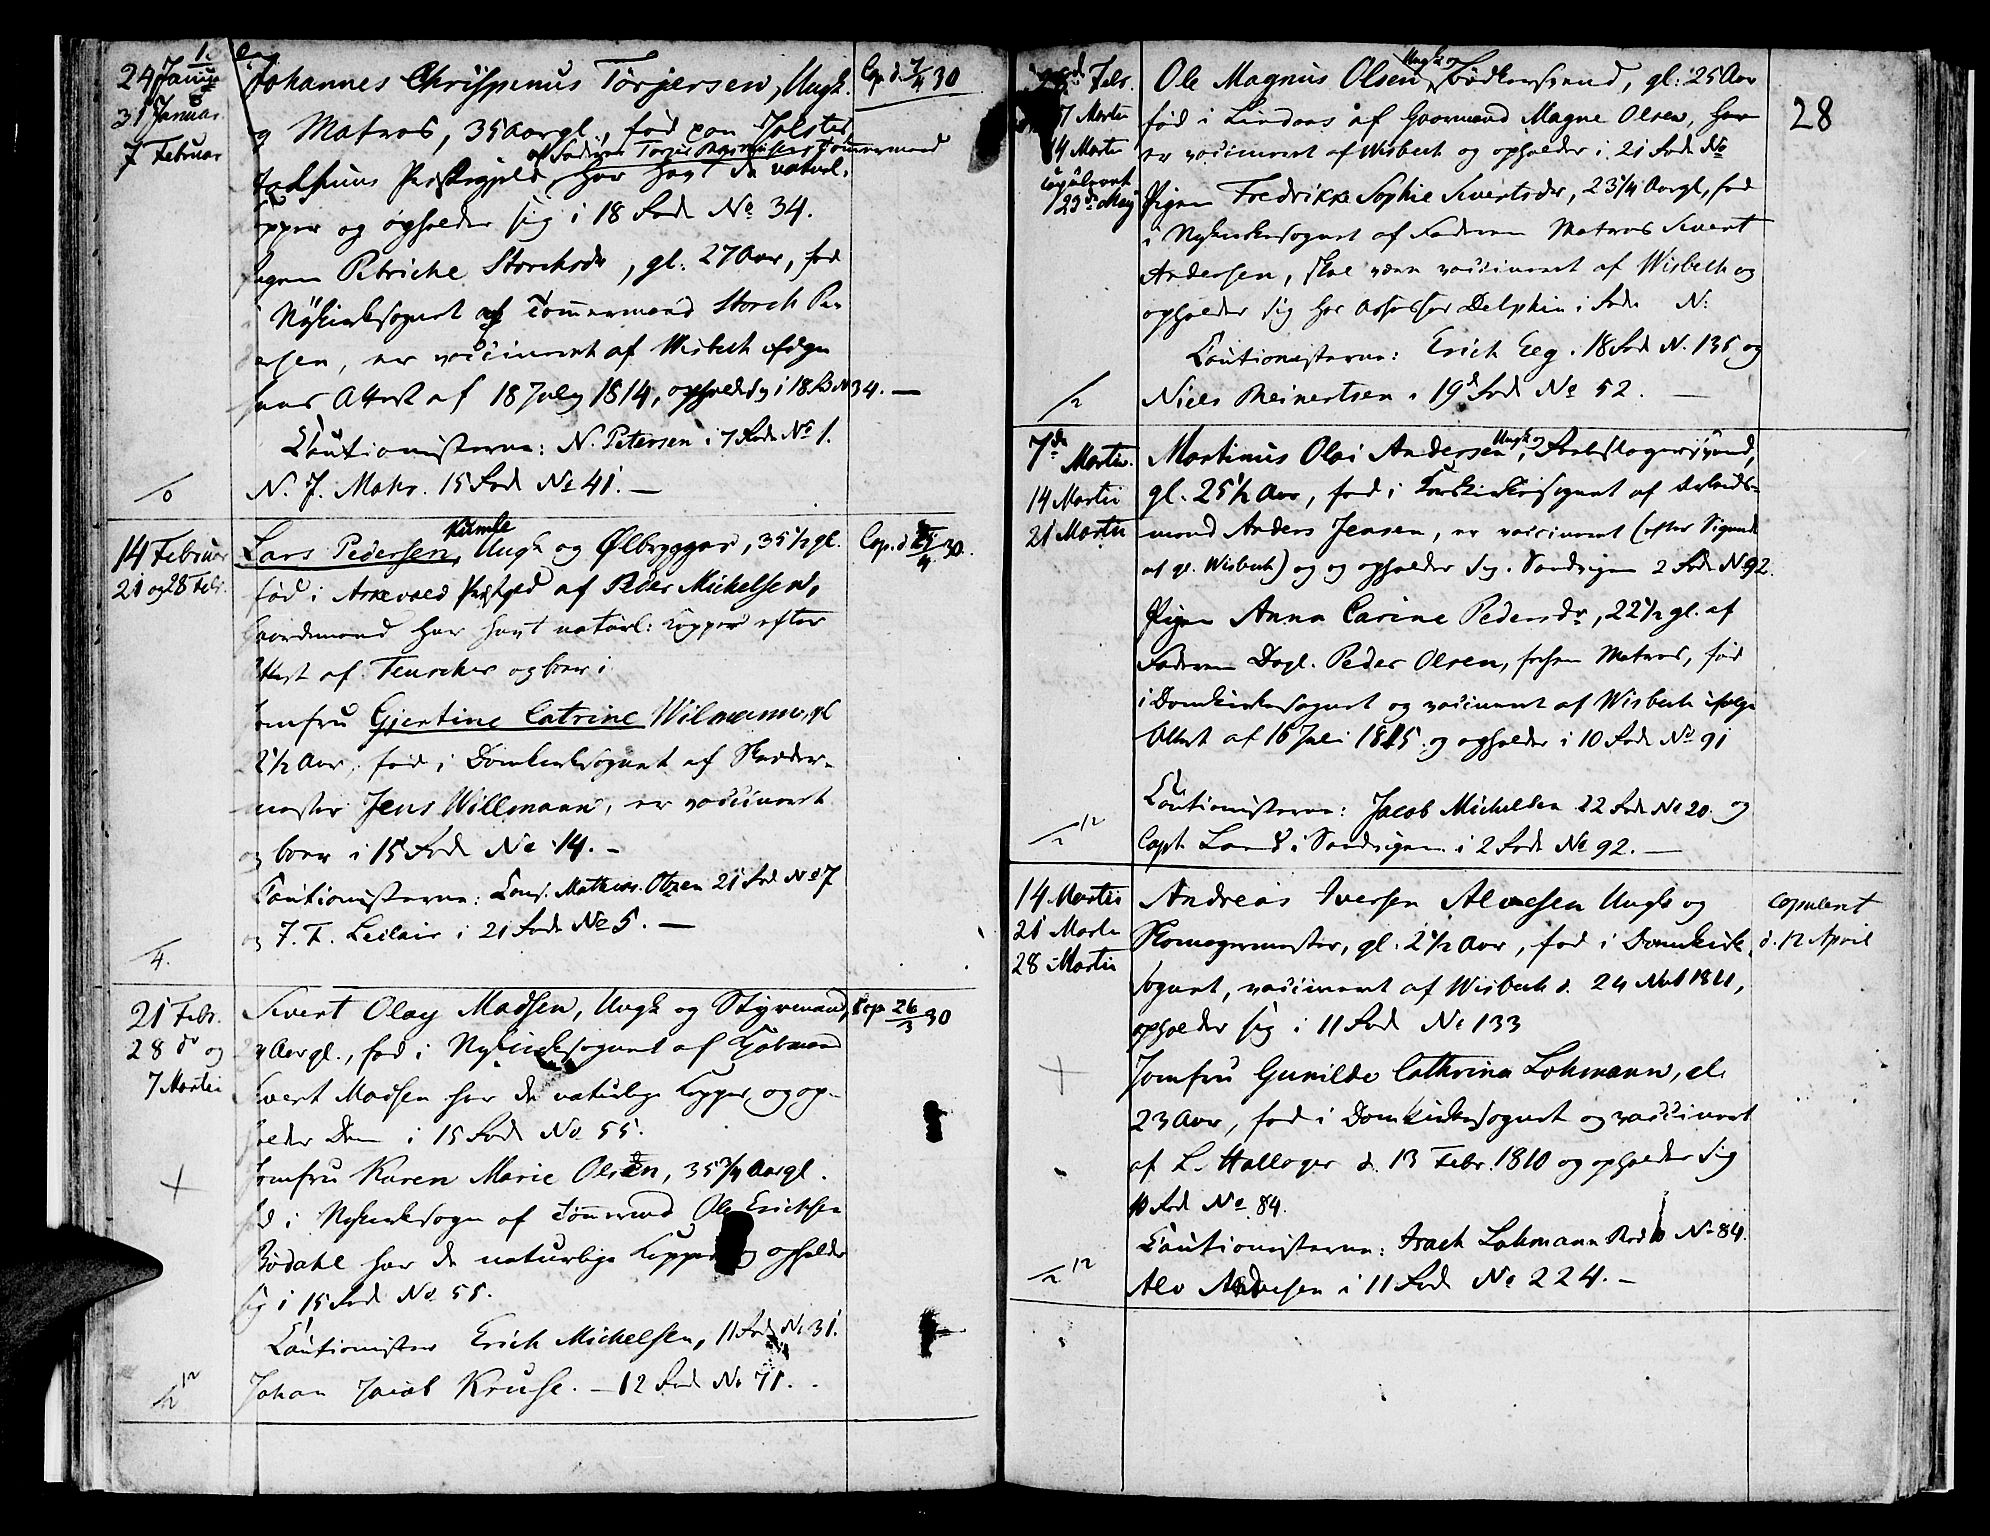 24 Januar
31 Januar
7 Februar
Johannes Chrispinus Torjersen, Ungk.
og Matros, 35 Aar gl., fød paa Jølster
af Faderen Torjus Rasmussen Tømmermand
Præstegjeld, har havt de naturl.
Kopper og opholder sig i 18 Rode No 34.
Pigen Petricke Storksdr, gl. 27 Aar, fød
i Nykirkesognet af Tømmermand Storch Pe-
dersen, er vaccineret af Wisbech ifølge
hans Attest af 18 July 1814, opholds sig i 18 R N 34. —
Cautionisterne: N. Petersen i 7 Rode No 1.
N. J. Mohr. 15 Rode No 41. —
Cop. d. 7/4 30
14 Februar
21 og 28 Febr.
Lars Pedersen Kumle, Ungk og Ølbrygger, 35 1/2 gl.
fød i Arnevaed Præstegjeld af Peder Michelsen,
Gaardmand har havt naturl: Kopper efter
Attest af Teuscher og boer i
Jomfru Gjertine Catrine Wilmann, gl
21 1/2 Aar, fød i Domkirkesognet af Skredder-
mester Jens Willmann, er vaccineret
og boer i 15 Rode No 14. —
Cautionisterne: Cons. Mathias Olsen 21 Rod No 7
og F. F. Leclair i 21 Rode No 5. —
4.
21 Febr.
28 do og
7 Martii
Sivert Olay Madsen, Ungk og Styrmand,
24 Aar gl., fød i Nykirkesognet af Kjøbmand
Sivert Madsen har de naturlige Kopper, og op-
holder Dem i 15 Rode No 55.
Jomfru Karen Marie Olsen, 35 3/4 Aar gl.
fød i Nykirkesogn af Tømmermd Ole Erichsen
Rødahl har de naturlige Kopper og opholder
sig i 15 Rode No 55.
Cautionister Erich Michelsen, 11 Rode No 31.
Johan Jacob Kruse. — 12 Rode No 71.
Cop 26/3 30
28
Febr.
7 Martii
14 Martii
Copuleret
23 d. May
Ole Magnus Olsen, Ungk og Bødkersvend, gl: 25 Aar
fød i Lindaas af Gaarmand Magne Olsen, han
er vaccineret af Wisbech og opholder i 21 Rode No
Pigen Fredrikke Sophie Sivertsdr, 23 1/4 Aar gl, fød
i Nykirkesognet af Faderen Matros Sivert
Andersen, skal være vaccineret af Wisbech og
opholder sig hos Assessor Delphin i Rode N:
Cautionisterne: Erich Eeg i 18 Rode N. 135 og
Niels Meinertsen i 19 d Rode No 52. —
7de Martii.
14 Martii
21 Martii
Martinus Olai Andersen, Ungk og Farbslagersvend,
gl. 25 1/2 Aar, fød i Korskirkesognet af Arbeids-
mand Anders Jensen, er vaccineret (efter Sigende
af gl. Wisbech) og og opholder sig i Sandvigen 2 Rode No 92.
Pigen Anna Carine Pedersdr, 22 1/2 gl. af
Faderen Dagl. Peder Olsen, forhen Matros, fød
i Domkirkesognet og vaccineret af Wisbech ifølge
Attest af 16 Juli 1815 og opholder i 10 Rode No 91
Cautionisterne: Jacob Michelsen 22 Rode No 20. og
Capt. Lund i Sandvigen i 2 Rode No 92. —
14 Martii
21 Martii
28 Martii
Andreas Iversen Alvesen Ungk og
Skomagermester, gl. 21 1/2 Aar, fød i Domkirke
sognet, vaccineret af Wisbech d. 24 1811,
opholder sig i 11 Rode No 133
Jomfru Gunilde Cathrina Lohmann, gl.
23 Aar, fød i Domkirkesognet og vaccineret
af L. Hallager d. 13 Febr. 1810 og opholder sig
10 Rode No 84.
Cautionisterne: Isach Lohmann Rod 10 No 84.
Alv Alvesen i 11 Rode No 224. —
copuleret
d. 12 April